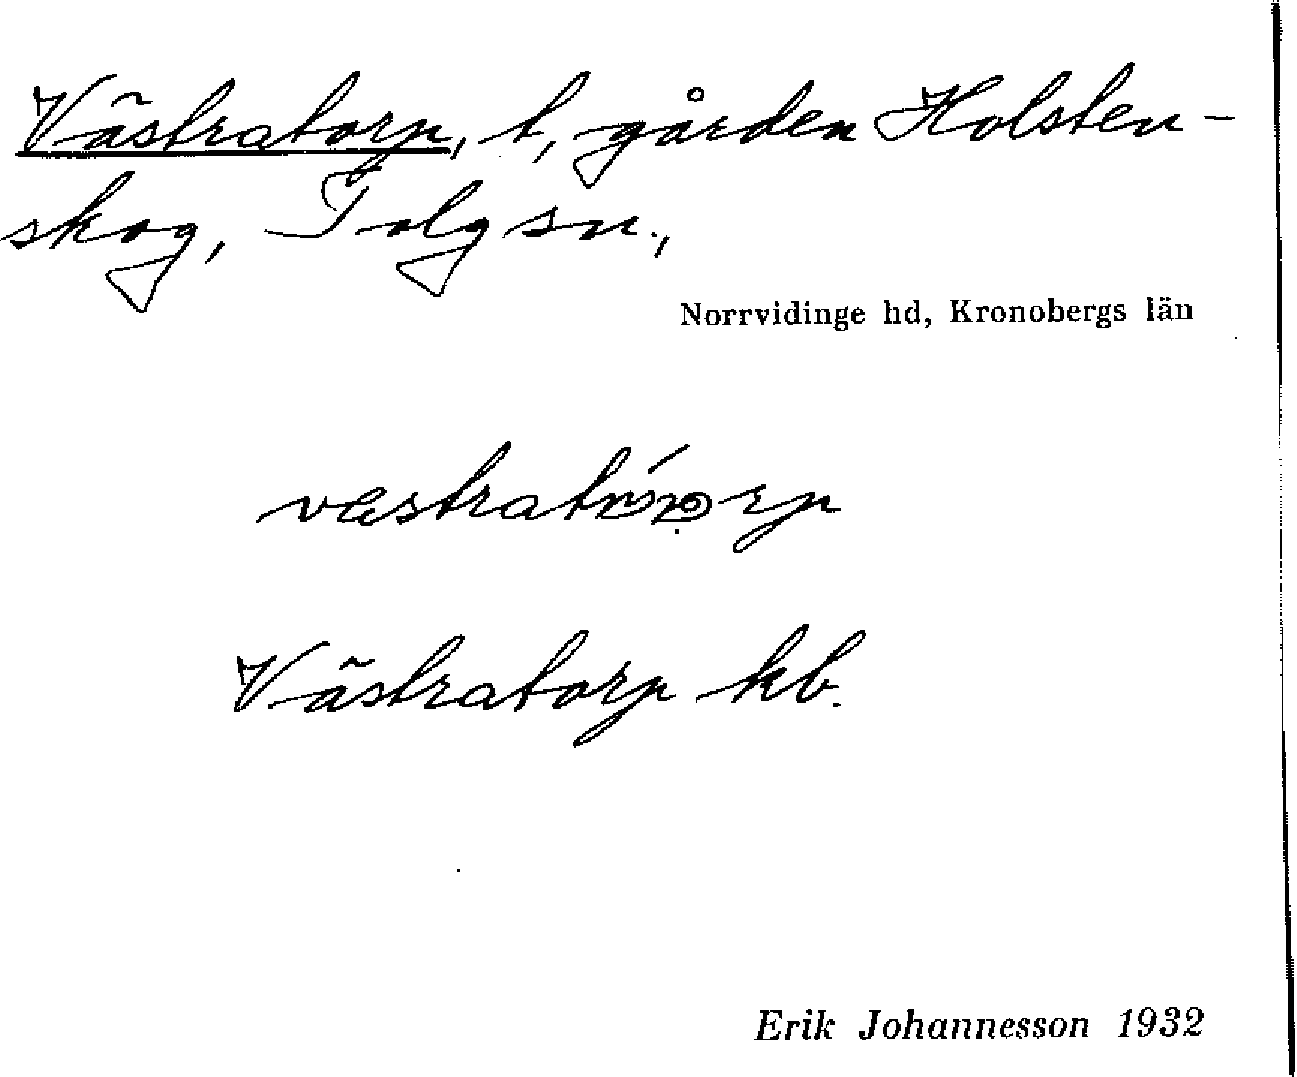 Västratorp, t, gården Holsten-
skog, Tolg sn.,
Norrvidinge hd, Kronobergs län
Västratorp kb.
Erik Johannesson 1932